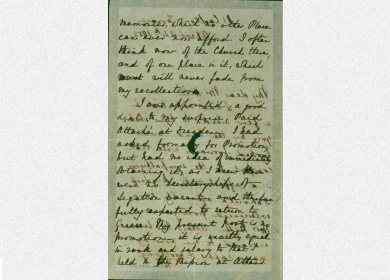 memories, which no other Place
can ever now afford. I often
think now of the Church there,
and of one place in it, which
will never fade from
my recollection.
I am appointed, a good
deal to my surprise, Paid
Attaché at Dresden. I had
asked formally for Promotion,
but had no idea of immediately
obtaining it, as I knew there
were no Secretaryships of
Legation vacant and
fully expected to return to
Greece. My present post is no
promotion, it is exactly equal
in rank and salary to that I
held in the Mission at Athens